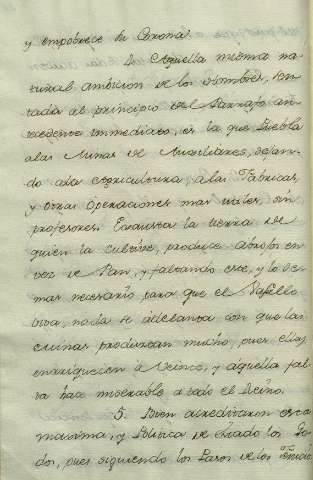 y empobrece su Corona.
De Aquella misma na-
tural ambicion de los Hombres, sen-
tada al principio del Parrafo an-
tecedente immediato, es la que Puebla
a las Minas de Auxiliares, dejan-
do a la Agricultura, a las Fabricas,
y otras Operaciones mas utiles, sin
profesores. Exausta la tierra de
quien la cultive, produce abrojos en
vez de Pan, y faltando este, y lo de-
mas necesario para que el Vasallo
viva, nada se adelanta con que las
minas produzcan mucho, pues ellas
enriquecen a Veinte, y aquella fal-
ta hace miserable a todo el Reino.
5. Bien acreditaron esta
maxima, y Politica de Estado los Go-
dos, pues siguiendo los Pasos de los